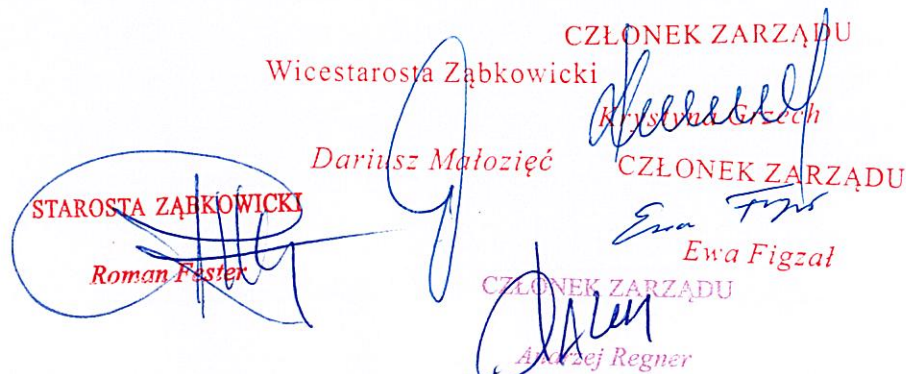 CZŁONEK ZARZĄDU
Wicestarosta Ząbkowicki
Krystyna Grzech
Dariusz Małozięć
CZŁONEK ZARZĄDU
STAROSTA ZĄBKOWICKI
Ewa
Ewa Figzał
Roman Fester
CZŁONEK ZARZĄDU
Andrzej Regner